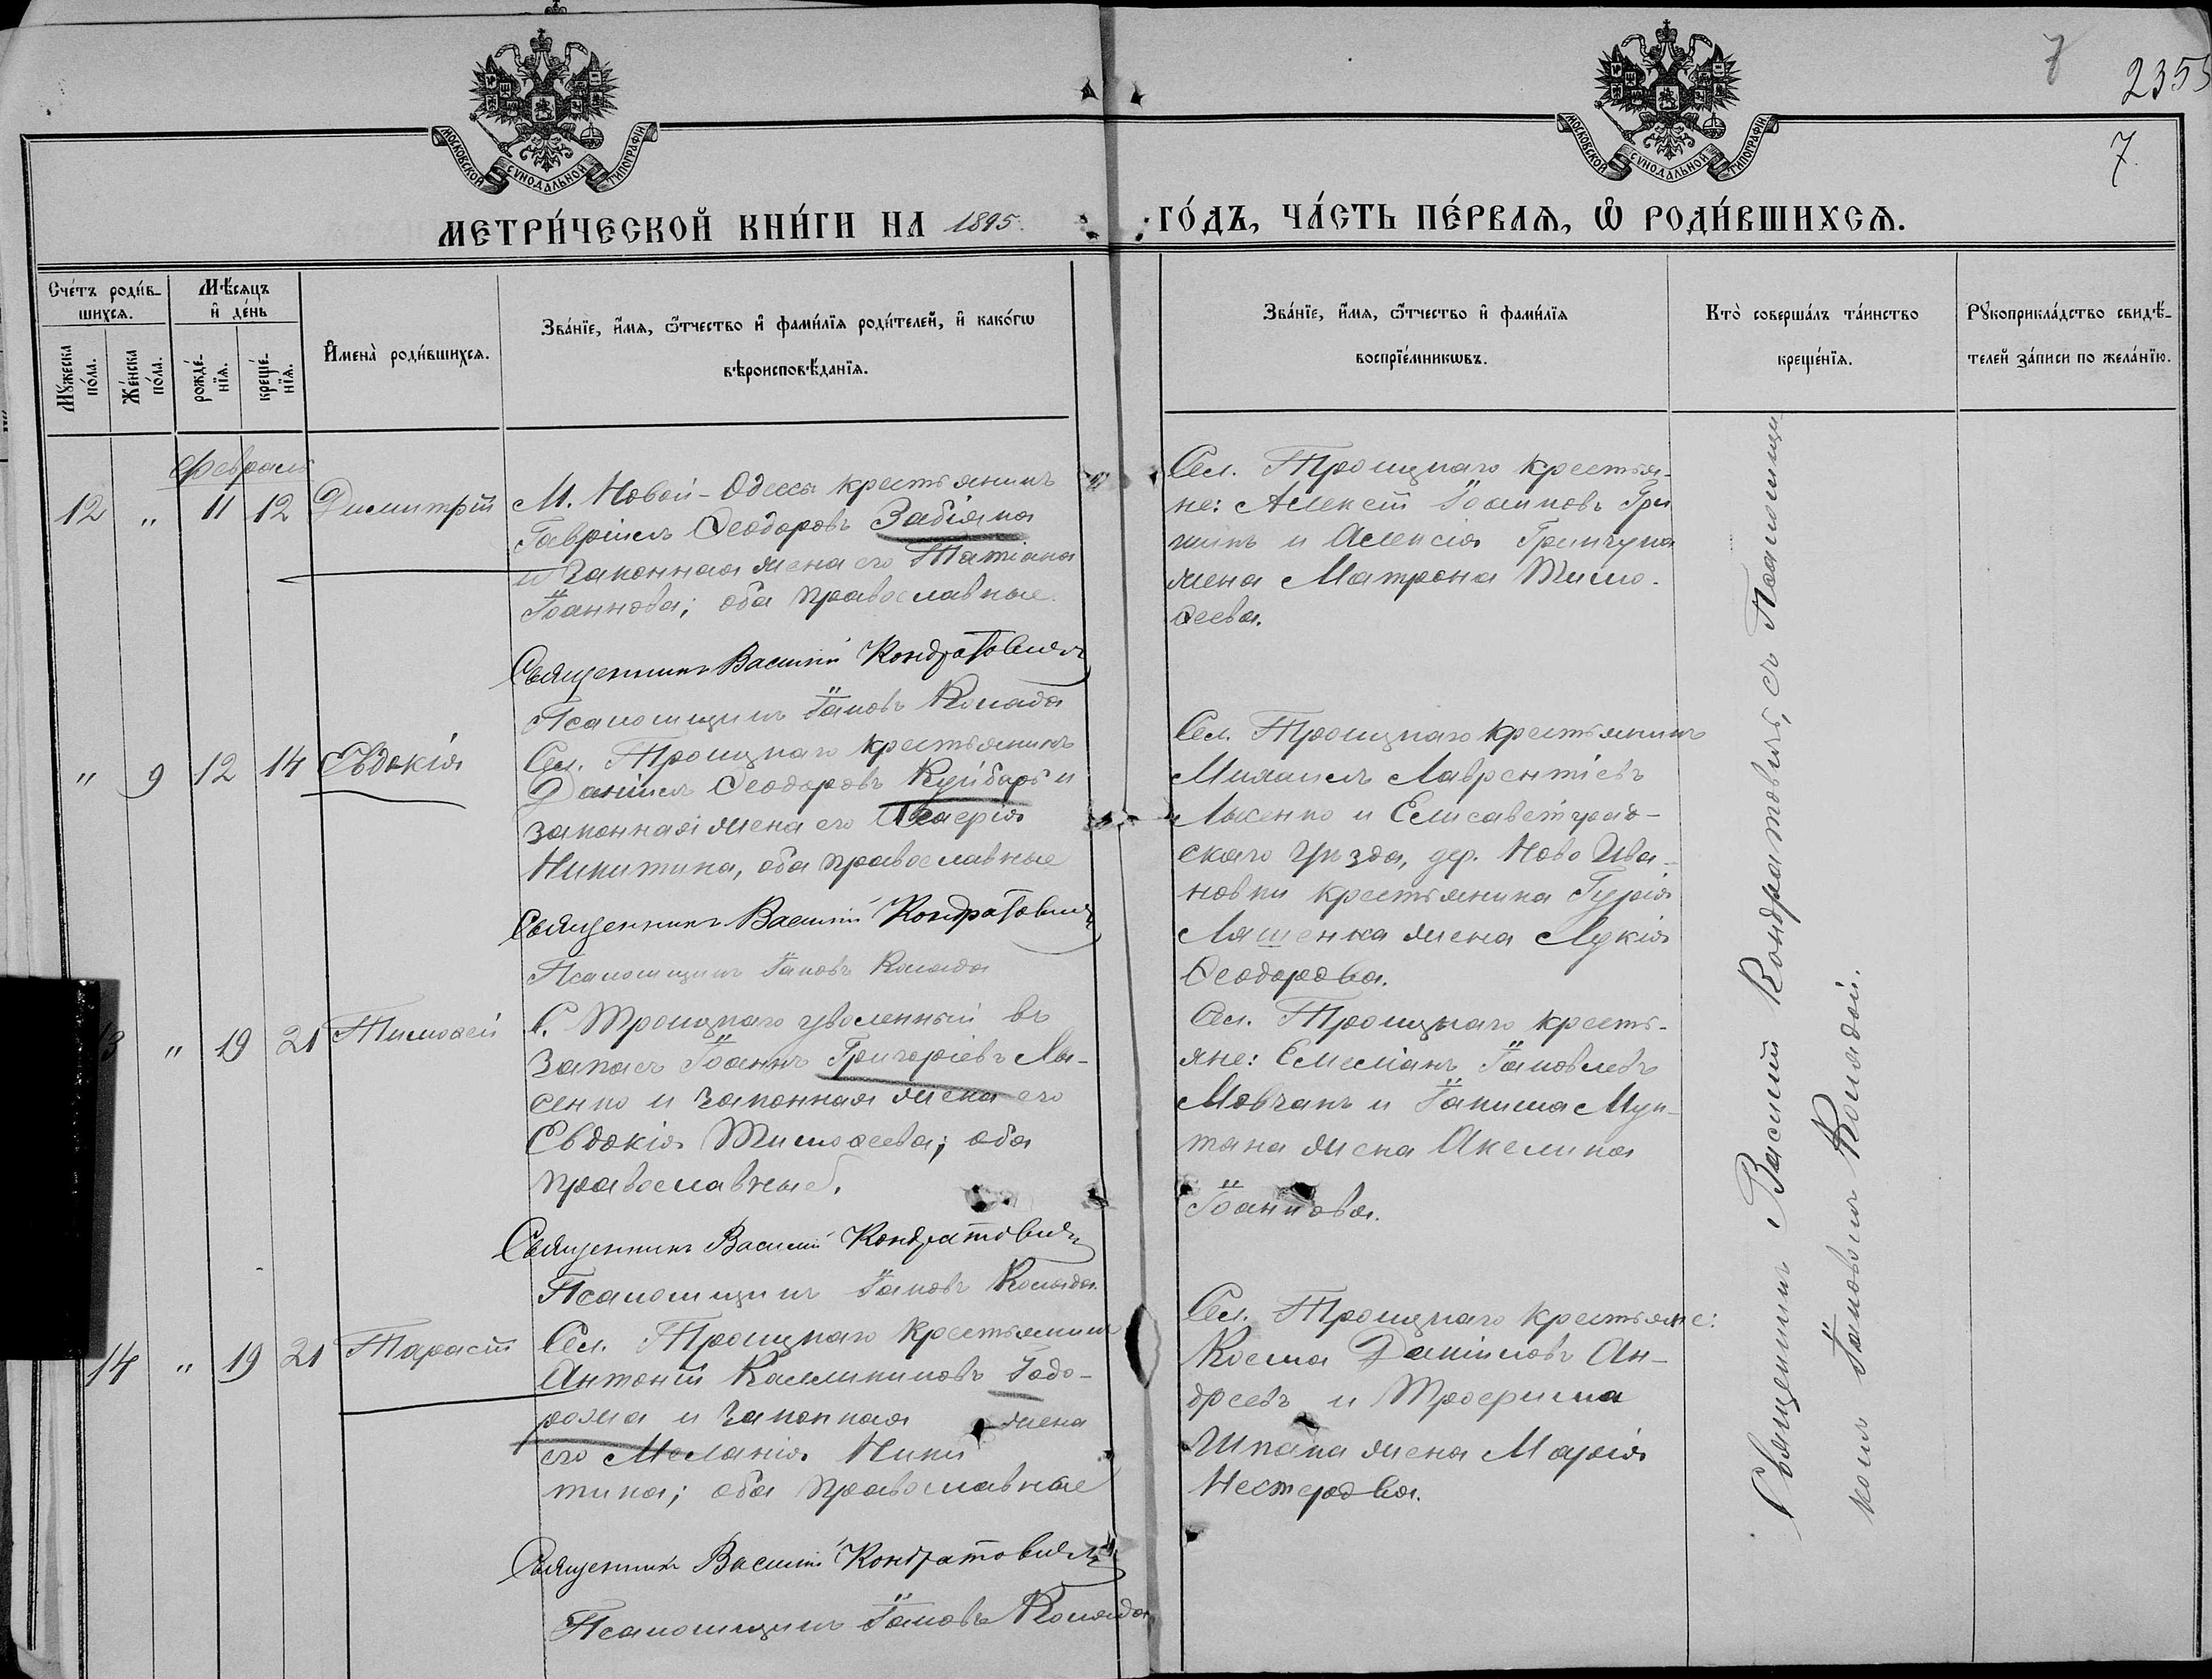 7
2355
7.
МОСКОВСКОЙ СѴНОДАЛЬНОЙ ТИПОГРАФІИ
МОСКОВСКОЙ СѴНОДАЛЬНОЙ ТИПОГРАФІИ
МЕТРИ́ЧЕСКОЙ КНИ́ГИ НА 1895. ГО́ДЪ, ЧА́СТЬ ПЕ́РВАѦ, Ѡ҆ РОДИ́ВШИХСѦ.
Сче́тъ роди́в-
шихсѧ.
Мꙋ́жеска по́ла.
Же́нска по́ла.
Мѣ́сяцъ и҆ де́нь
рожде́-нїѧ.
креще́-нїѧ.
И҆мена̀ роди́вшихсѧ.
Зва́нїе, и҆́мѧ, ѻ҆́тчество и҆ фами́лїѧ роди́телей, и҆ како́гѡ
вѣроисповѣ́данїѧ.
Зва́нїе, и҆́мѧ, ѻ҆́тчество и҆ фами́лїѧ
воспрїе́мникѡвъ.
Кто̀ соверша́лъ та́инство
креще́нїѧ.
Рꙋкоприкла́дство свидѣ́-
телей за́писи по жела́нїю.
Февраль
12 " 11 12 Димитрій
М. Новой-Одессы крестьянинъ
Гавріилъ Ѳеодоровъ Забіяка
и законная жена его Татіана
Іоаннова; оба православные.
Священникъ Василій Кондратовичъ
Псаломщикъ Іаковъ Коляда
Сел. Троицкаго крестья-
не: Алексій Іоанновъ Гри
и Алексія
жена Матрона Тимо-
ѳеева.
" 9 12 14 Евдокія
Сел. Троицкаго крестьянинъ
Даніилъ Ѳеодоровъ Куйбаръ и
законная жена его
Никитина, оба православные
Священникъ Василій Кондратовичъ
Псаломщикъ Іаковъ Коляда
Сел. Троицкаго крестьянинъ
Михаилъ Лаврентіевъ
Лысенко и Елисаветград-
скаго уѣзда, дер. Ново Ива-
новки крестьянина Гурія
Ляшенка жена Лукія
Ѳеодорова.
13 " 19 21 Тимоѳей
С. Троицкаго уволенный въ
запасъ Іоаннъ Григоріевъ Лы-
сенко и законная жена его
Евдокія Тимоѳеева; оба
православные.
Священникъ Василій Кондратовичъ
Псаломщикъ Іаковъ Коляда.
Сел. Троицкаго кресть-
яне: Емеліанъ Іаковлевъ
Мовчанъ и Іакима Мун-
тяна жена Акелина
Іоаннова.
14 " 19 21 Тарасій
Сел. Троицкаго крестьянинъ
Антоній Каллиниковъ Годо-
рожа и законная жена
его Меланія Ники
тина; оба православные
Священникъ Василій Кондратовичъ
Псаломщикъ Іаковъ Коляда
Сел. Троицкаго крестьяне:
Косма Даніиловъ Ан-
дреевъ и Трофима
Шпака жена Марія
Нестерова.
Священникъ Василій Кондратовичъ, съ Псаломщи-
комъ Іаковомъ Колядой.